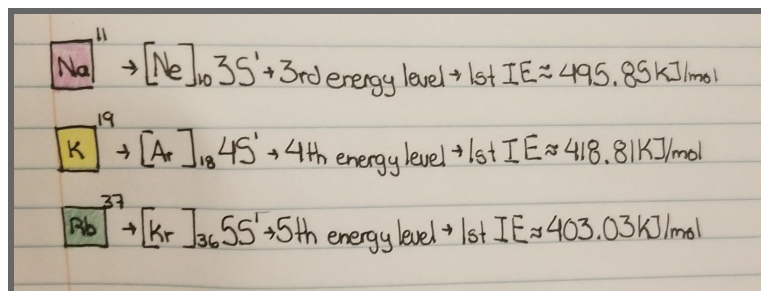 Na¹¹ → [Ne]₁₀ 3S¹ → 3rd energy level → 1st IE ≈ 495.85 KJ/mol
K¹⁹ → [Ar]₁₈ 4S¹ → 4th energy level → 1st IE ≈ 418.81 KJ/mol
Rb³⁷ → [Kr]₃₆ 5S¹ → 5th energy level → 1st IE ≈ 403.03 KJ/mol